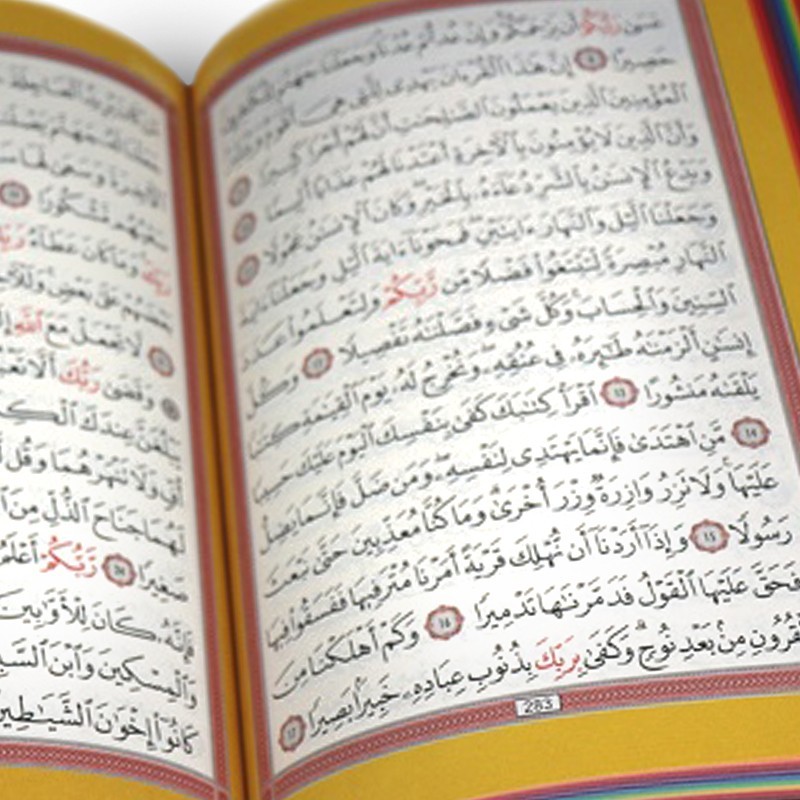 عسى ربكم أن يرحمكم وإن عدتم عدنا وجعلنا جهنم للكافرين
حصيرا ۝٨ إن هذا القرءان يهدي للتي هي أقوم ويبشر
المؤمنين الذين يعملون الصالحات أن لهم أجرا كبيرا ۝٩
وأن الذين لا يؤمنون بالآخرة أعتدنا لهم عذابا أليما ۝١٠
ويدع الإنسان بالشر دعاءه بالخير وكان الإنسان عجولا ۝١١
وجعلنا اليل والنهار ءايتين فمحونا ءاية اليل وجعلنا ءاية
النهار مبصرة لتبتغوا فضلا من ربكم ولتعلموا عدد
السنين والحساب وكل شيء فصلناه تفصيلا ۝١٢ وكل
إنسان ألزمناه طائره في عنقه ونخرج له يوم القيامة كتابا
يلقاه منشورا ۝١٣ اقرأ كتابك كفى بنفسك اليوم عليك حسيبا
۝١٤ من اهتدى فإنما يهتدي لنفسه ومن ضل فإنما يضل
عليها ولا تزر وازرة وزر أخرى وما كنا معذبين حتى نبعث
رسولا ۝١٥ وإذا أردنا أن نهلك قرية أمرنا مترفيها ففسقوا فيها
فحق عليها القول فدمرناها تدميرا ۝١٦ وكم أهلكنا من
القرون من بعد نوح وكفى بربك بذنوب عباده خبيرا بصيرا ۝١٧
283
سعيهم مشكورا
ربك وما كان عطاء رب
بعضهم على بعض وللآخ
لا تجعل مع الله إل
وقضى ربك ألا تعب
يبلغن عندك الك
أف ولا تنهرهما وقل
لهما جناح الذل من ا
صغيرا ۝٢٤ ربكم أعلم
فإنه كان للأوابين
والمسكين وابن السب
كانوا إخوان الشياطين